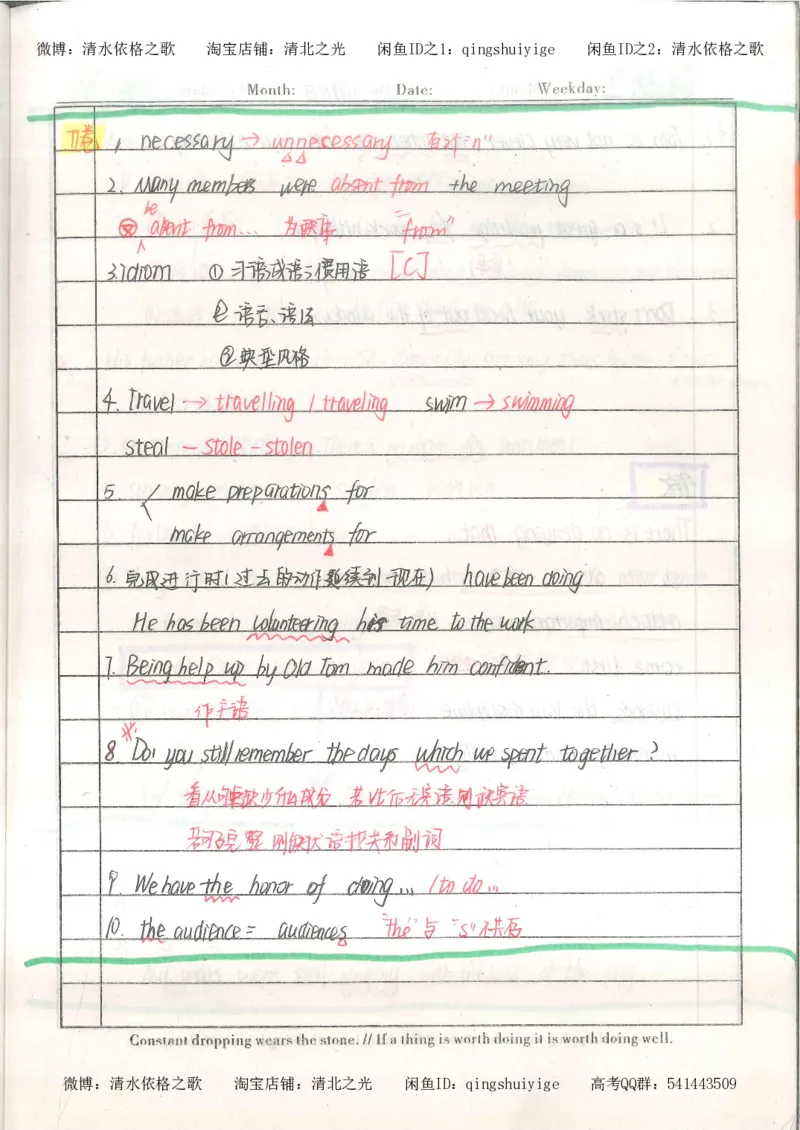 微博：清水依格之歌 淘宝店铺：清北之光 闲鱼ID之1：qingshuiyige 闲鱼ID之2：清水依格之歌
Month: Date: Weekday:
1. necessary → unnecessary 有2个"n"
2. Many members were absent from the meeting
be
absent from... 为 "from"
3. idiom ① 习语成语;惯用语 [C]
② 语言、语法
③ 典型风格
4. Travel → travelling / traveling swim → swimming
steal — stole - stolen
5. make preparations for
make arrangements for
6. 完成进行时(过去的动作延续到现在) have been doing
He has been volunteering his time to the work
7. Being help up by Old Tom made him confident.
作主语
8. Do you still remember the days which we spent together ?
看从句缺少什么成分 若从句无宾语则缺宾语
若句子完整 则缺状语 把关系副词
9. We have the honor of doing... / to do...
10. the audience = audiences "the"与"s"不共存
Constant dropping wears the stone. // If a thing is worth doing it is worth doing well.
微博：清水依格之歌 淘宝店铺：清北之光 闲鱼ID：qingshuiyige 高考QQ群：541443509